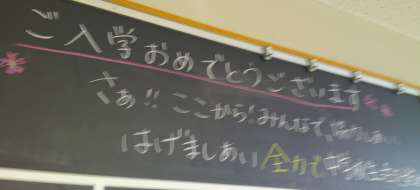 ご入学おめでとうございます
さぁ!! ここから!みんなで、協力しあい
はげましあい 全力で